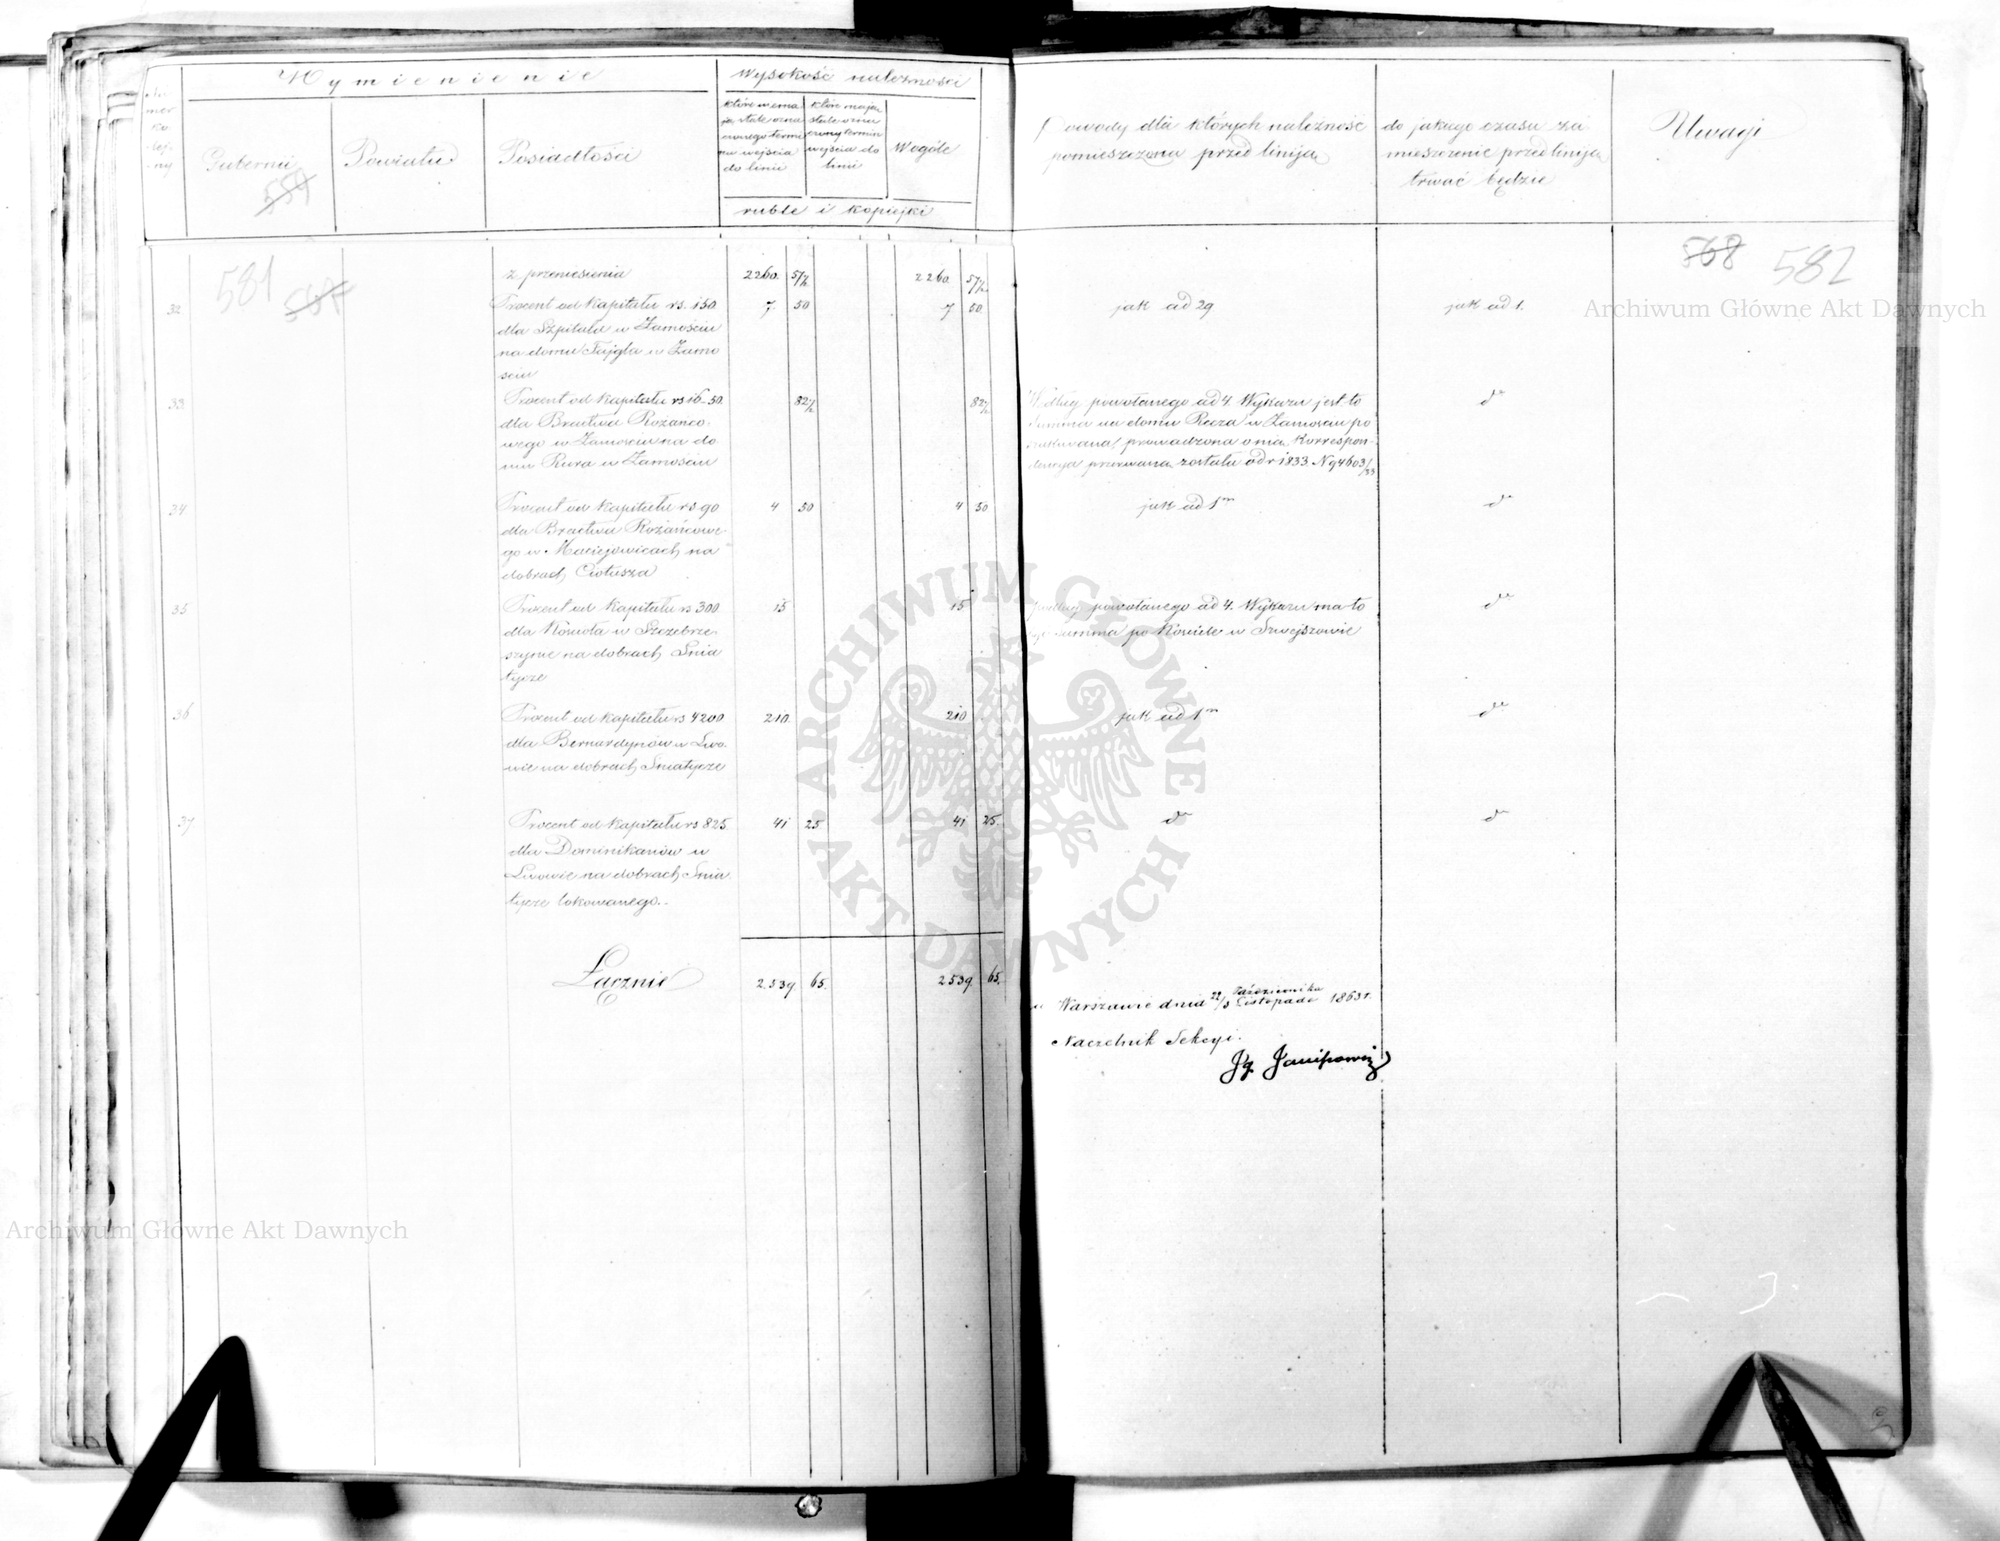 Wymienienie
Wysokość należności
Numer kolejny
Gubernii
Powiatu
Posiadłości
które niema
ją stale ozna
czonego termi
nu wejścia
do linii
które mają
stale ozna
czony termin
wejścia do
linii
Wogóle
ruble i kopiejki
Powody dla których należność
pomieszczona przed linija
do jakiego czasu za
mieszczenie przed linija
trwać będzie
Uwagi
584
581
568 582
z przeniesienia 2260. 57½ 2260. 57½
32 Procent od kapitału rs. 150 7. 50 7 50. jak ad 29 jak ad 1.
dla Szpitala w Zamościu
na domu Fajgla w Zamo
ściu
33 Procent od kapitału rs 16-50. 82½ 82½ Według powołanego ad 4. Wykazu jest to dº
dla Bractwa Różańco- summa na domu Recza w Zamościu po
wego w Zamościu na do szukiwana, prowadzona o nią Korrespon-
mu Rura w Zamościu dencyja przerwana została od r 1833 Nº 4603/33
34 Procent od kapitału rs 90 4 50 4 50 jak ad 1m dº
dla Bractwa Różańcowe-
go w Maciejowicach na
dobrach Ciotusza
35 Procent od kapitału rs 300 15 15 podług powołanego ad 4. Wykazu ma to dº
dla Kościoła w Szczebrze- summa po Kościele w Szwejszowie
szynie na dobrach Śnia
tycze
36 Procent od kapitału rs 4200 210. 210 jak ad 1m dº
dla Bernardynów w Lwo-
wie na dobrach Śniatycze
37 Procent od kapitału rs 825. 41 25. 41 25. dº dº
dla Dominikanów w
Lwowie na dobrach Śnia
tycze lokowanego.
Łącznie 2539. 65. 2539. 65.
w Warszawie dnia 22/3 Października/Listopada 1863 r.
Naczelnik Sekcyi.
Archiwum Główne Akt Dawnych
Archiwum Główne Akt Dawnych
ARCHIWUM GŁÓWNE
AKT DAWNYCH